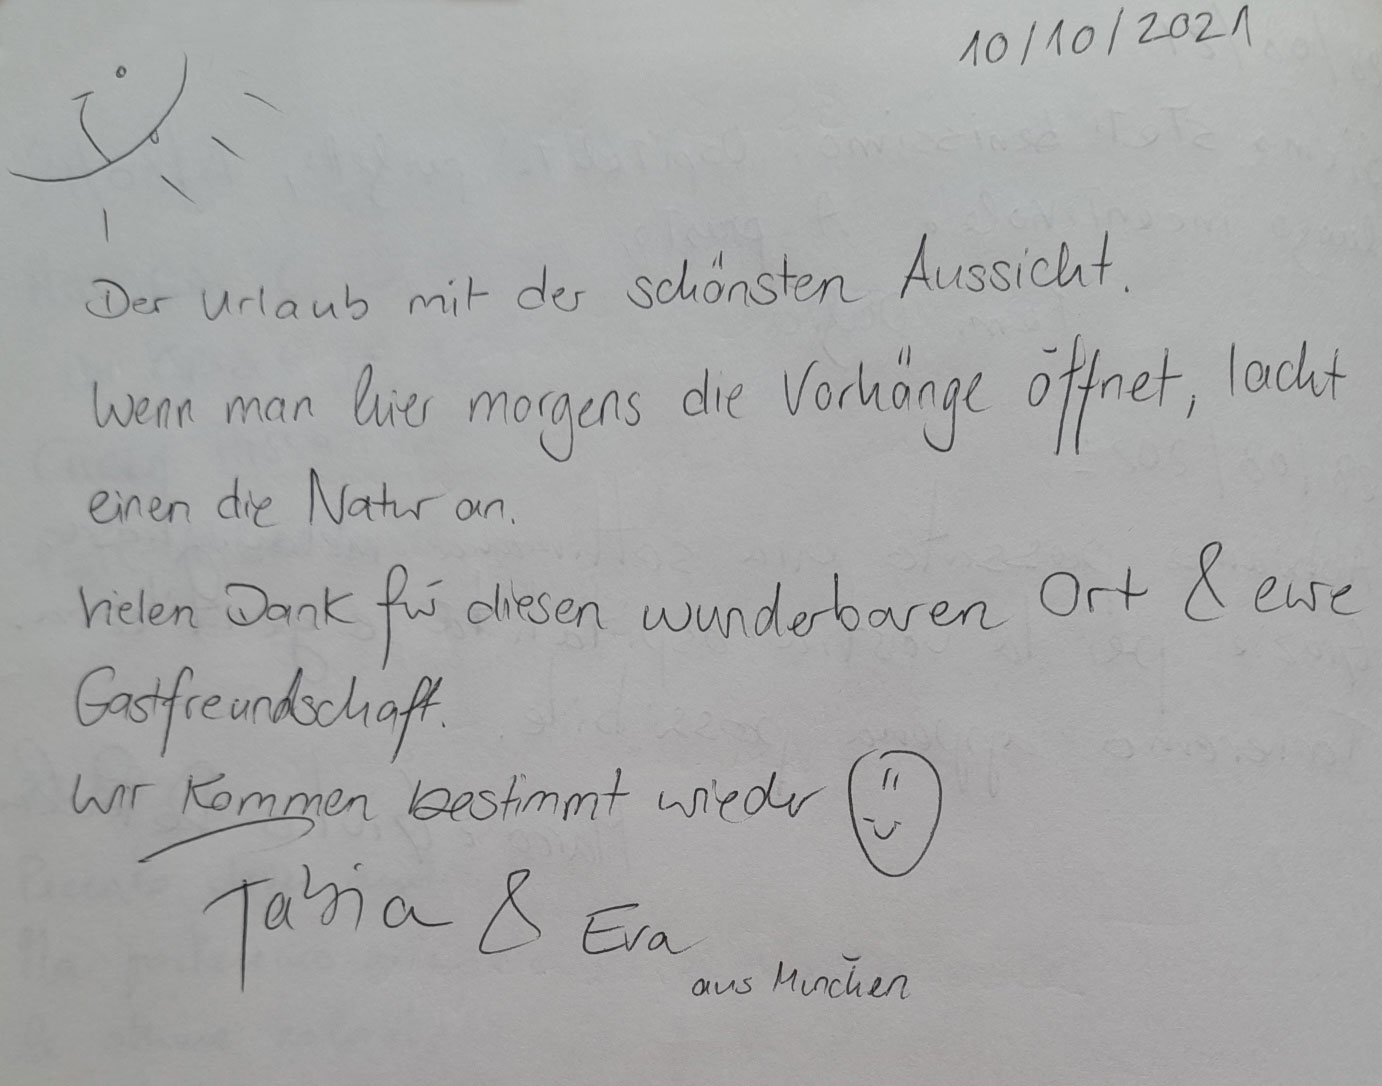 10/10/2021
Der Urlaub mit der schönsten Aussicht.
Wenn man hier morgens die Vorhänge öffnet, lacht
einen die Natur an.
Vielen Dank für diesen wunderbaren Ort & eure
Gastfreundschaft.
Wir kommen bestimmt wieder
& Eva
aus München